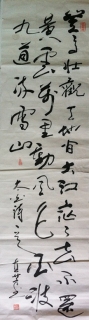 登高壮觀天地间大江茫茫去不還
黄雲萬里動風色白波
九道流雪山
太白詩之